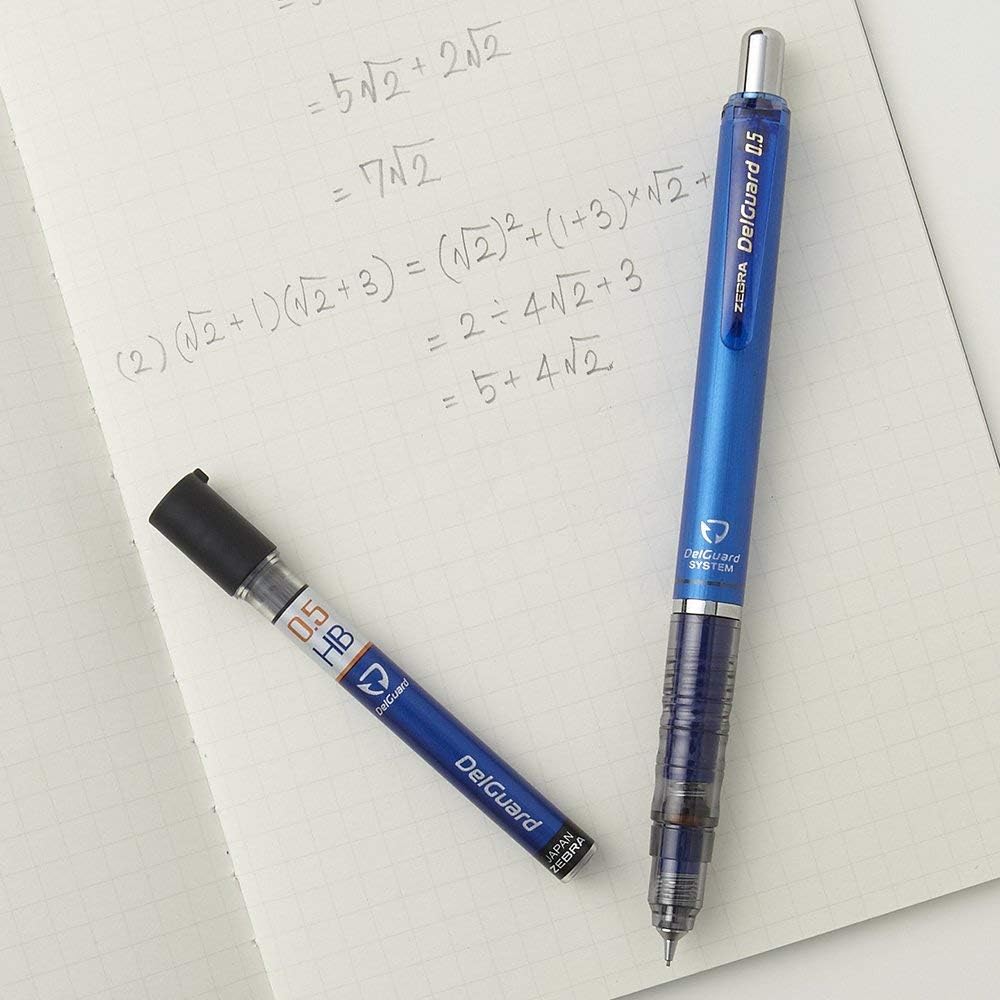 = 5√2 + 2√2
= 7√2
(2) (√2 + 1)(√2 + 3) = (√2)² + (1+3) × √2 +
= 2 ÷ 4√2 + 3
= 5 + 4√2
ZEBRA DelGuard 0.5
DelGuard
SYSTEM
0.5
HB
DelGuard
DelGuard
JAPAN
ZEBRA